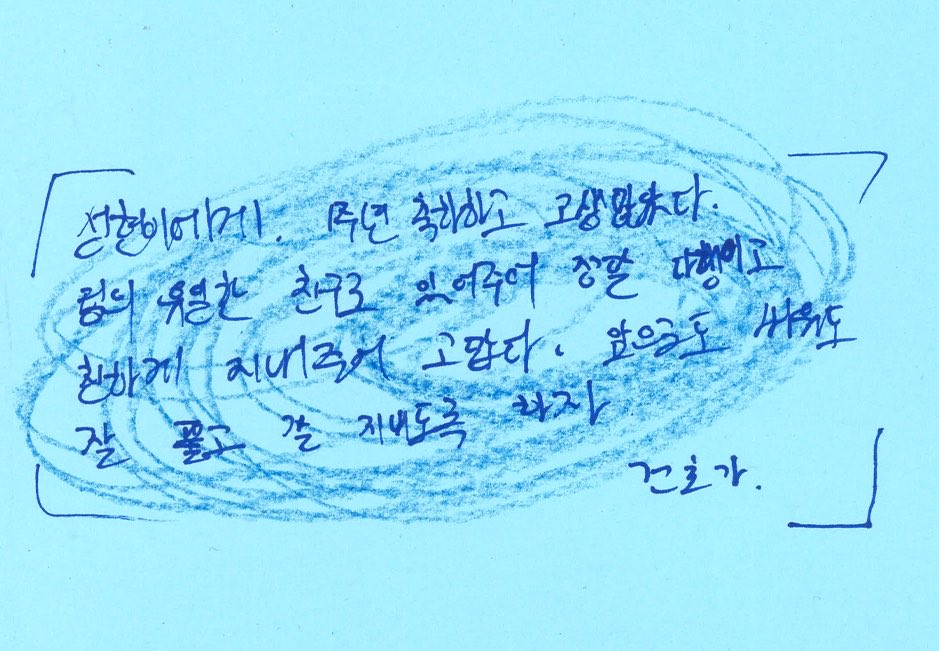 선현이에게. 1주년 축하하고 고생많았다.
팀의 유일한 친구로 있어주어 정말 다행이고
친하게 지내주어 고맙다. 앞으로도 싸워도
잘 풀고 잘 지내도록 하자
건호가.